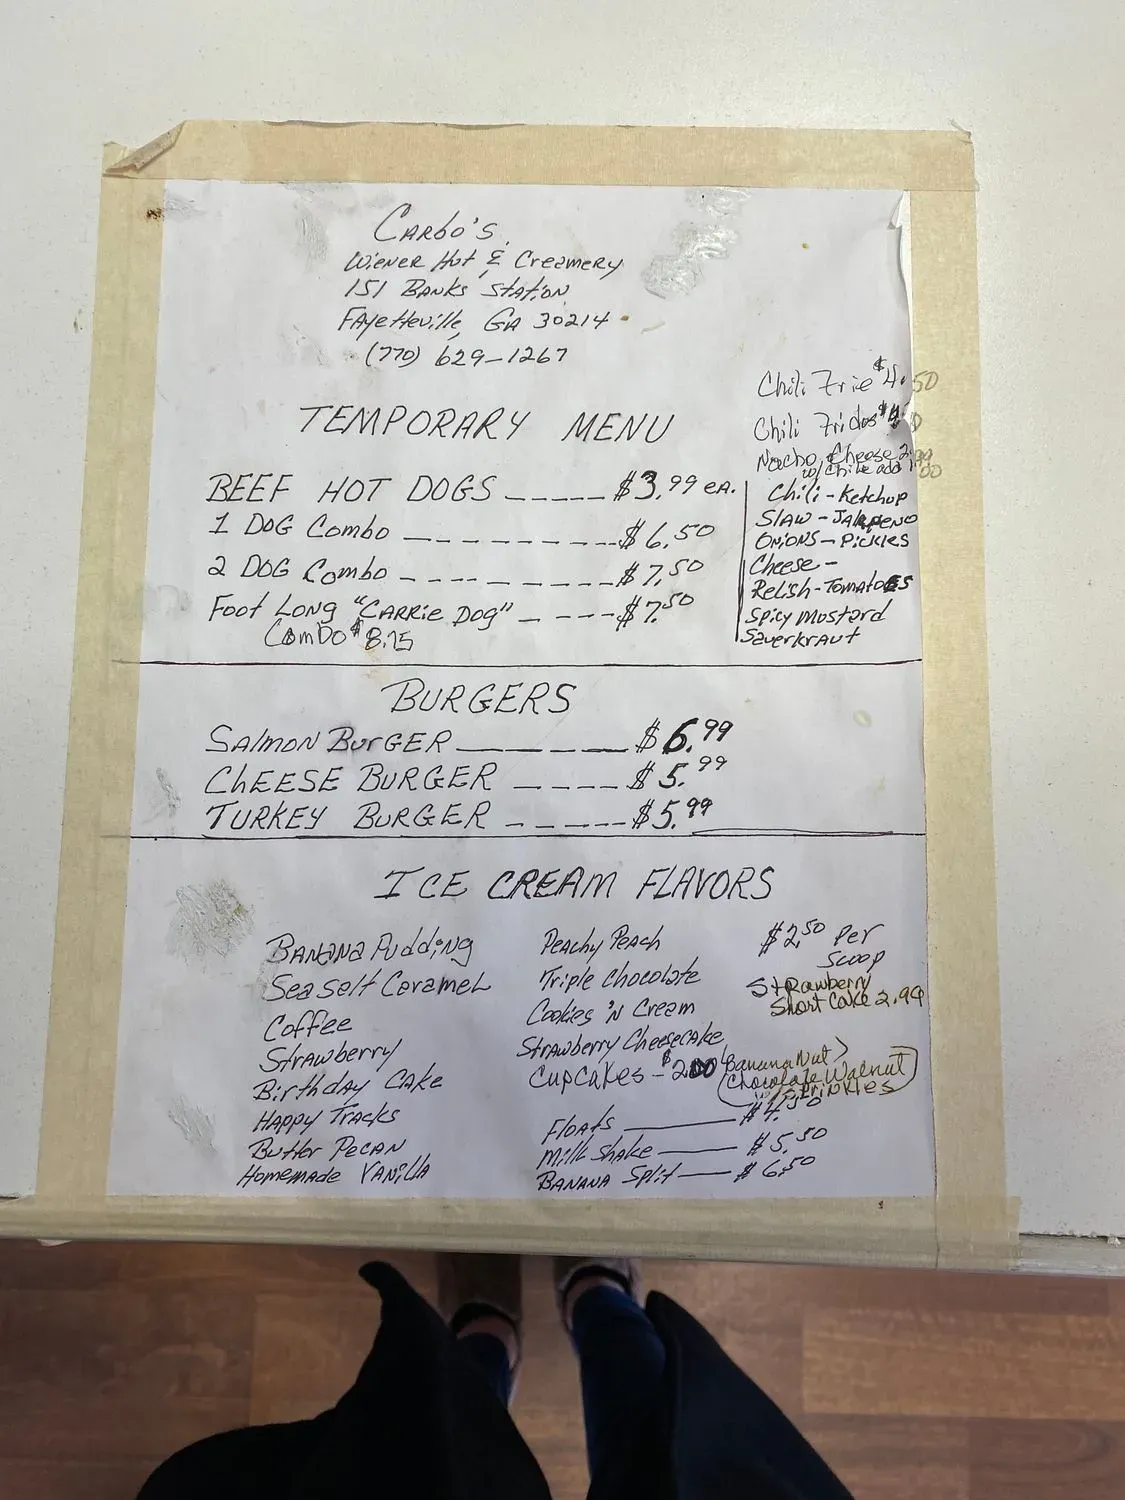 CARBO'S
Wiener Hut & Creamery
151 Banks Station
Fayetteville, GA 30214
(770) 629-1267
Chili Frie $4.50
Chili Fridos
Nacho Cheese 2.99
w/ Chile add
TEMPORARY MENU
BEEF HOT DOGS $3.99 ea.
1 DOG Combo $6.50
2 DOG Combo $7.50
Foot Long "CARRIE DOG" $7.50
Combo $8.75
Chili - Ketchup
Slaw - Jalapeno
Onions - Pickles
Cheese -
Relish - Tomatoes
Spicy Mustard
Sauerkraut
BURGERS
Salmon Burger $6.99
CHEESE BURGER $5.99
TURKEY BURGER $5.99
ICE CREAM FLAVORS
Banana Pudding
Sea Salt Caramel
Coffee
Strawberry
Birthday Cake
Happy Tracks
Butter Pecan
Homemade Vanilla
Peachy Peach
Triple Chocolate
Cookies 'N Cream
Strawberry Cheesecake
Cupcakes - $2.00
$2.50 Per
Scoop
Strawberry
Short Cake 2.99
Banana Nut
Chocolate Walnut
w/ Sprinkles
Floats $4.50
Milk Shake $5.50
Banana Split $6.50